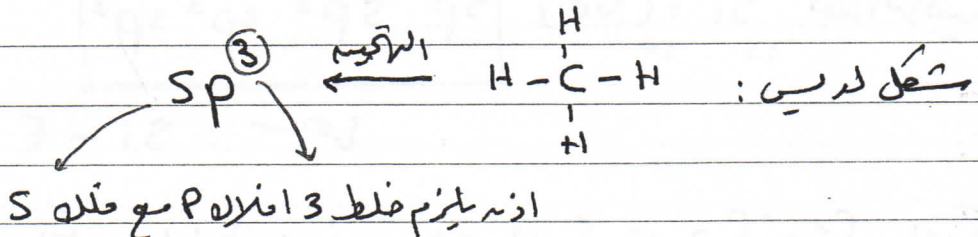 شكل لويس :
H
H - C - H
H
التهجين
sp³
اذن يلزم خلط 3 افلاك P مع فلك S